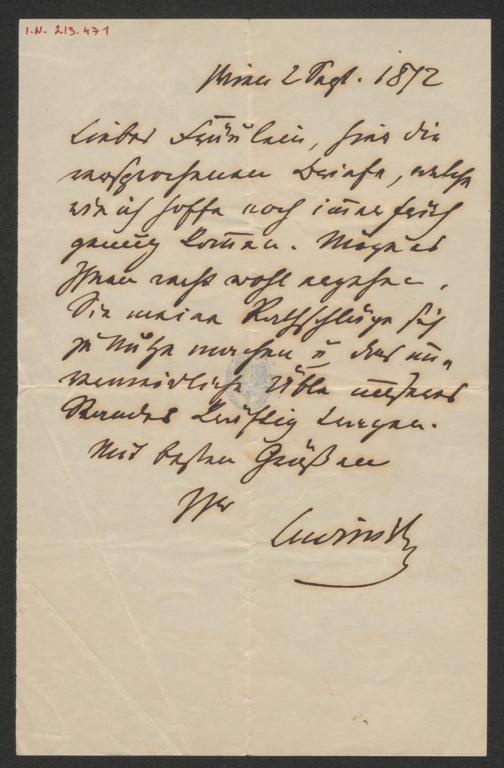 I.N. 213.471
Wien 2 Sept. 1872
Liebes Fräulein, hier die
versprochenen Briefe, welche
wie ich hoffe noch im̄er früh
genug kom̄en. Möge es
Ihnen recht wohl ergehen,
Sie meine Rathschläge sich
zu Nutze machen u das un„
vermeidliche Üble unseres
Standes kräftig tragen.
Mit besten Grüßen
Ihr
Lewinsky